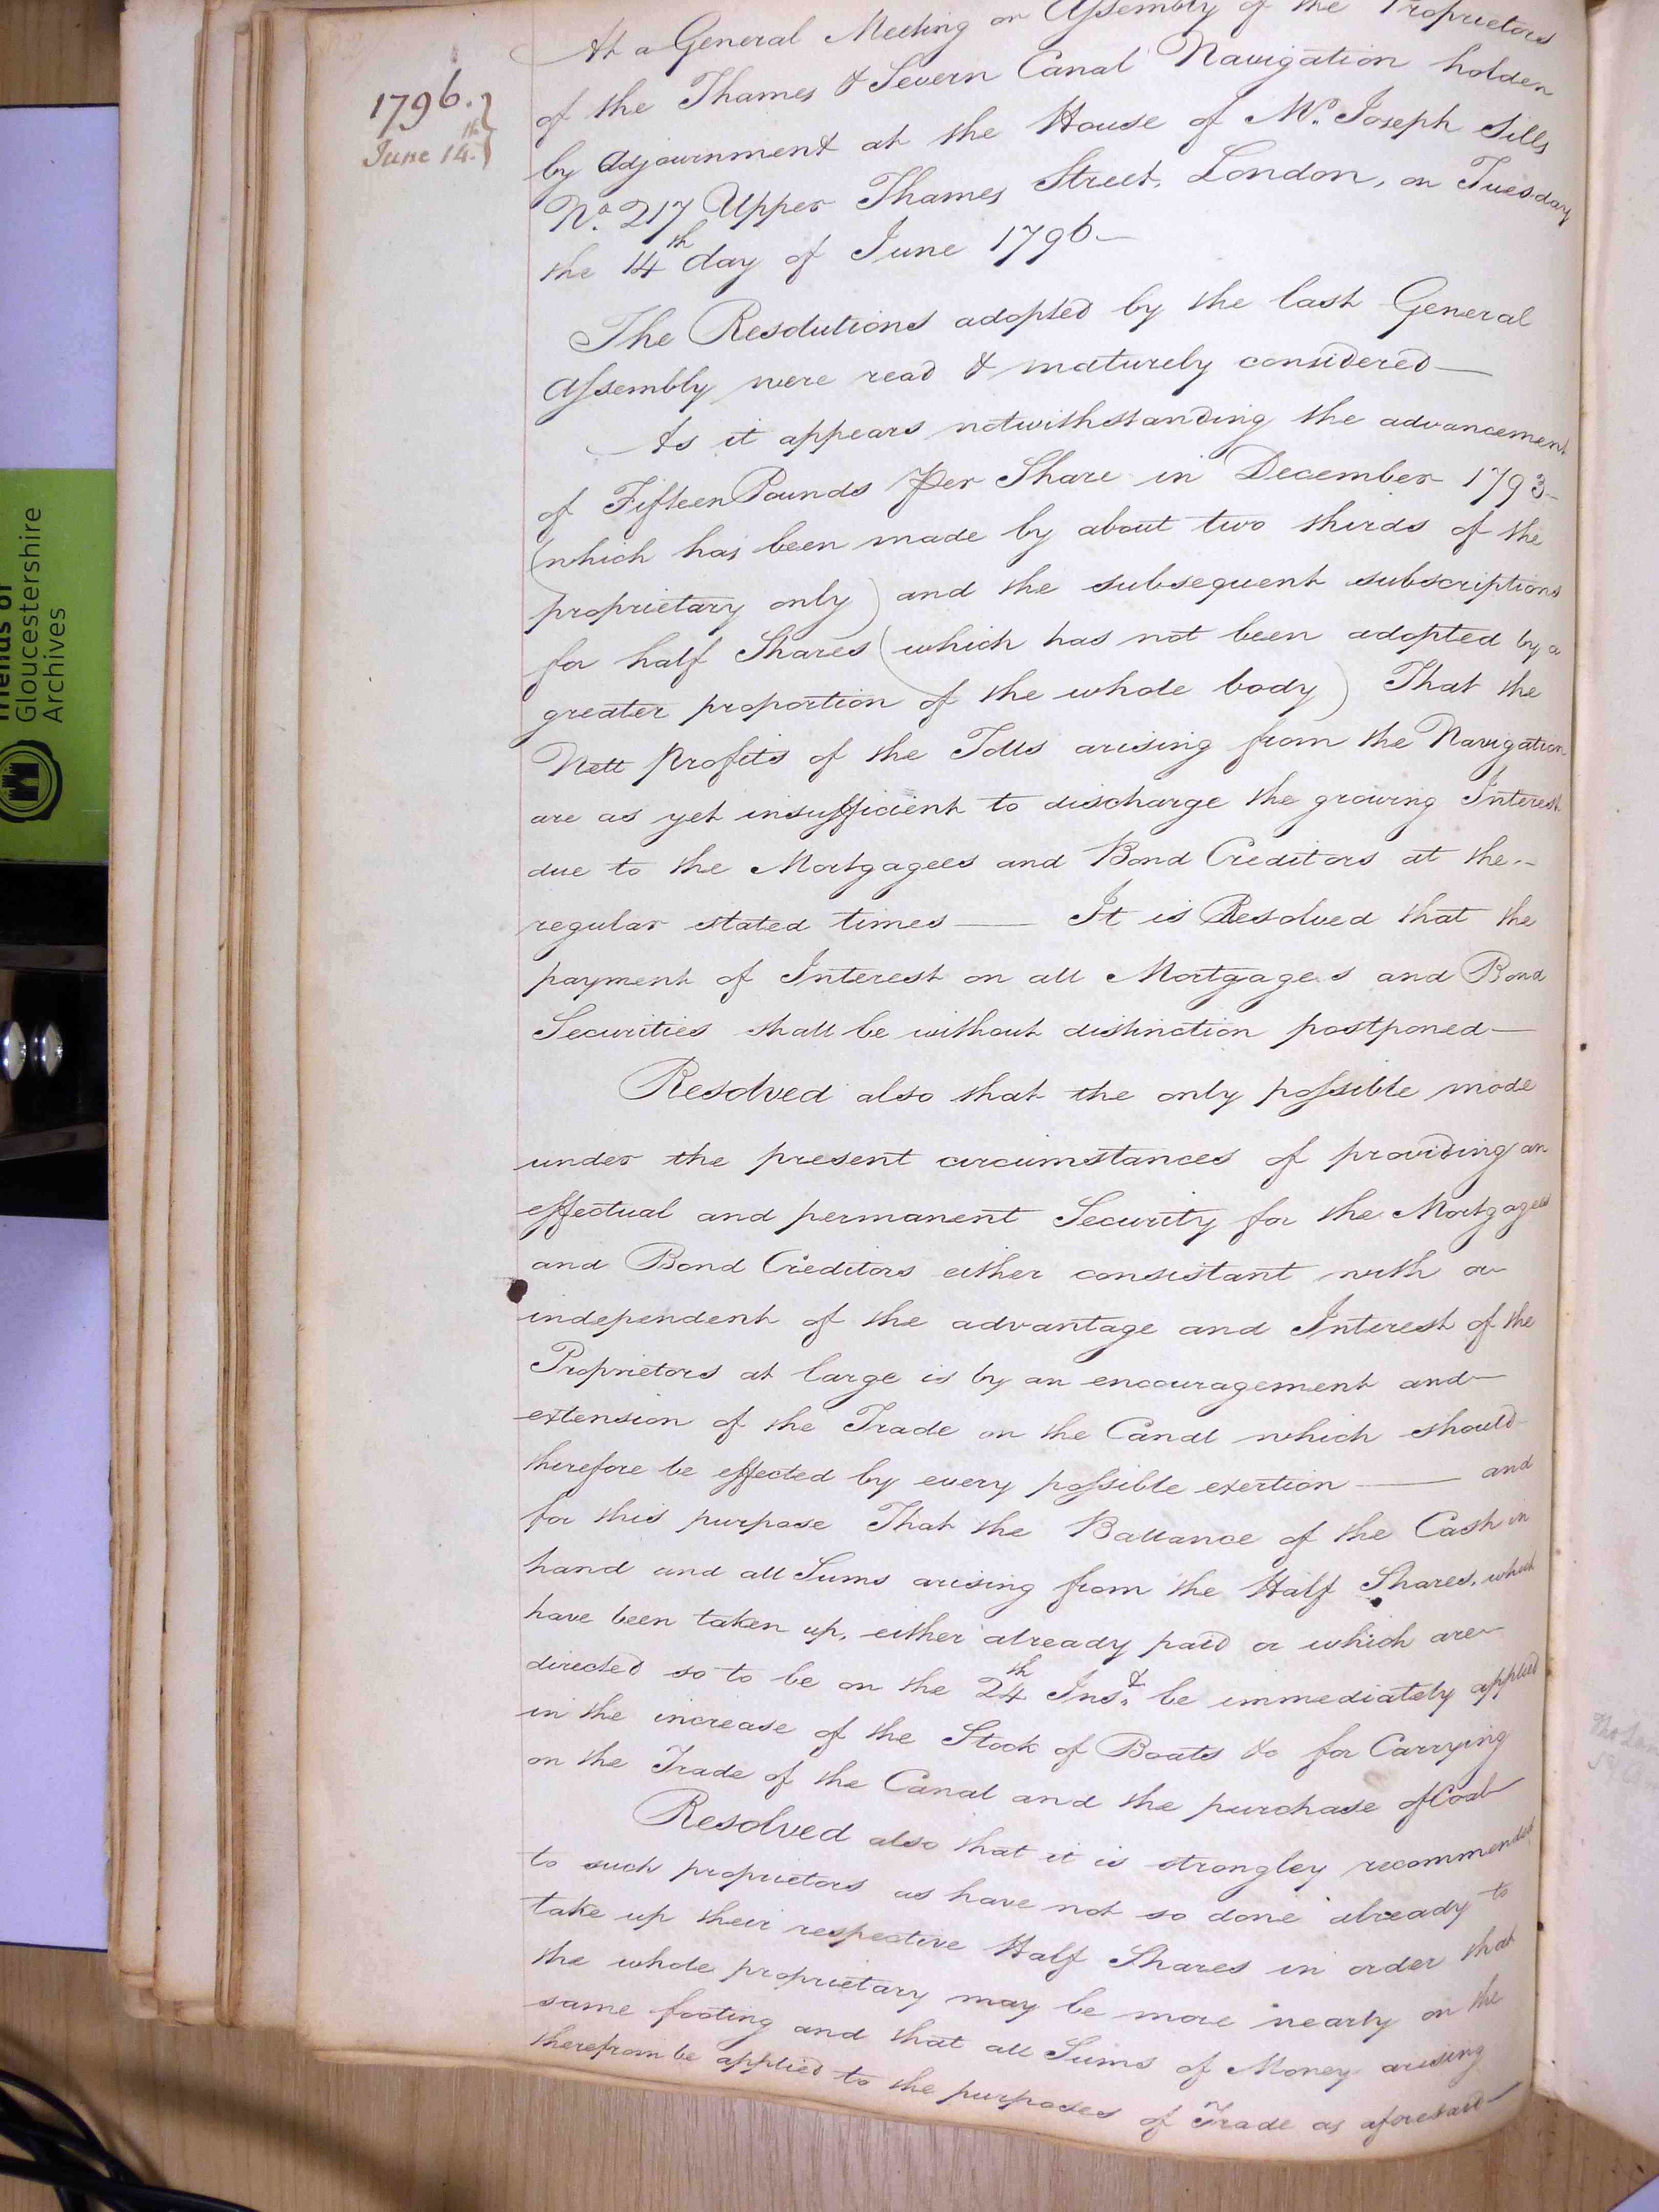 1796.
June 14.th
At a General Meeting or Assembly of the Proprietors
of the Thames & Severn Canal Navigation holden
by Adjournment at the House of Mr. Joseph Sills
No. 217 Upper Thames Street, London, on Tuesday
the 14th day of June 1796—
The Resolutions adopted by the last General
Assembly were read & maturely considered—
As it appears notwithstanding the advancement
of Fifteen Pounds Per Share in December 1793—
(which has been made by about two thirds of the
proprietary only) and the subsequent subscriptions
for half Shares (which has not been adopted by a
greater proportion of the whole body) That the
Nett Profits of the Tolls arising from the Navigation
are as yet insufficient to discharge the growing Interest
due to the Mortgagees and Bond Creditors at the—
regular stated times — It is Resolved that the
payment of Interest on all Mortgages and Bond
Securities shall be without distinction postponed—
Resolved also that the only possible mode
under the present circumstances of providing an
effectual and permanent Security for the Mortgagees
and Bond Creditors either consistant with or
independent of the advantage and Interest of the
Proprietors at large is by an encouragement and—
extension of the Trade on the Canal which should
therefore be effected by every possible exertion — and
for this purpose That the Ballance of the Cash in
hand and all Sums arising from the Half Shares, which
have been taken up, either already paid or which are
directed so to be on the 24th Inst. be immediately applied
in the increase of the Stock of Boats &c for Carrying
on the Trade of the Canal and the purchase of Coal
Resolved also that it is strongley recommended
to such proprietors as have not so done already to
take up their respective Half Shares in order that
the whole proprietary may be more nearly on the
same footing and that all Sums of Money arising
therefrom be applied to the purposes of Trade as aforesaid—
Friends of
Gloucestershire
Archives